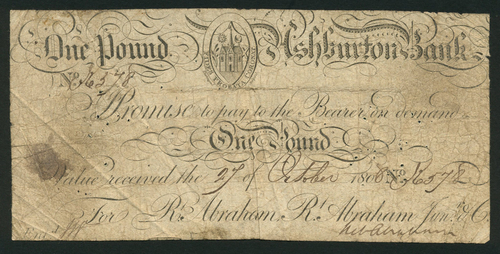 One Pound Ashburton Bank
No A6578
I Promise to pay to the Bearer on demand
One Pound
Value received the 27 of October 1808 No A6578
For Rt. Abraham, Rt. Abraham Junr. & Co.
Abraham